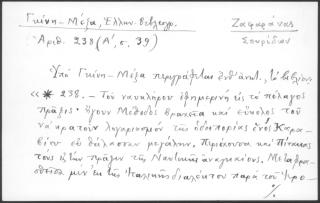 Γκίνη - Μέξα, Ἑλλην. Βιβλιογρ.
Ζαφαράνας
Ἀριθ. 238 (Α', σ. 39)
Σπυρίδων
Ὑπὸ Γκίνη - Μέξα περιγράφεται τὸ βιβλίον
«✱ 238. - Τοῦ ναυκλήρου ἐφημερινὴ εἰς τὸ πέλαγος
πρᾶξις· ἤγουν Μέθοδος βραχεῖα καὶ εὔκολος τοῦ
νὰ κρατοῦν λογαριασμὸν τῆς ὁδοιπορίας ἑνὸς Καρα-
βίου εἰς θάλασσαν μεγάλην. Περιέχουσα καὶ Πίνακας
τοὺς εἰς τὴν πρᾶξιν τῆς Ναυτικῆς ἀναγκαίους. Μεταφρα-
σθεῖσα μὲν ἐκ τῆς Ἰταλικῆς διαλέκτου παρὰ τοῦ Κυρο-
./.